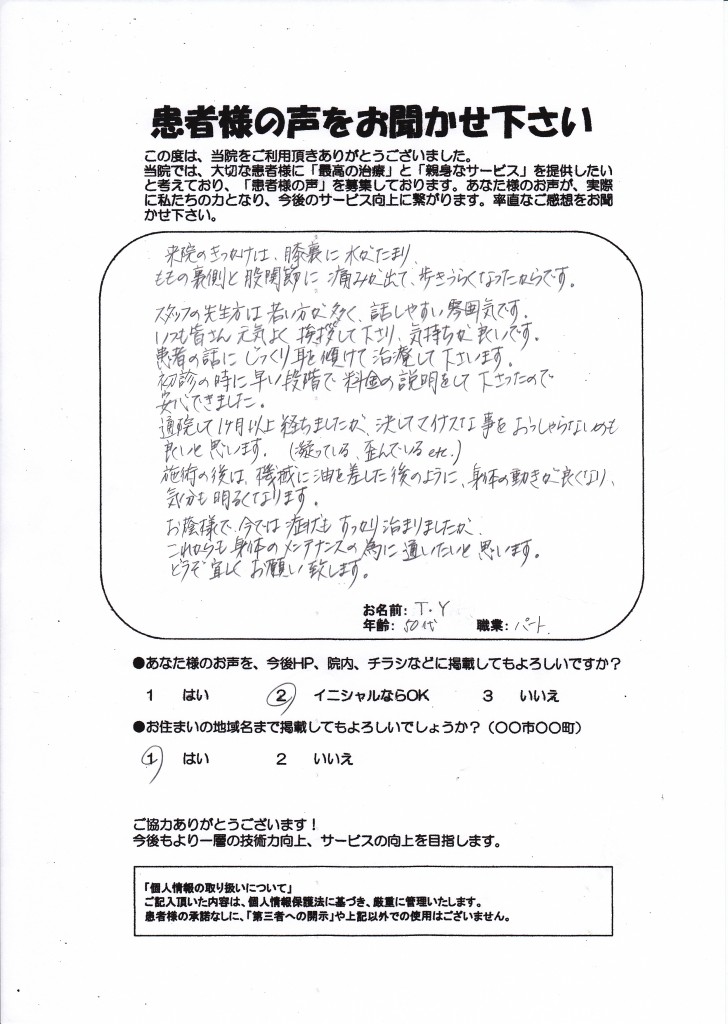 患者様の声をお聞かせ下さい
この度は、当院をご利用頂きありがとうございました。
当院では、大切な患者様に「最高の治療」と「親身なサービス」を提供したい
と考えており、「患者様の声」を募集しております。あなた様のお声が、実際
に私たちの力となり、今後のサービス向上に繋がります。率直なご感想をお聞
かせ下さい。
来院のきっかけは、膝裏に水がたまり、
ももの裏側と股関節に痛みが出て、歩きづらくなったからです。
スタッフの先生方は若い方が多く、話しやすい雰囲気です。
いつも皆さん元気よく挨拶して下さり、気持ちが良いです。
患者の話にじっくり耳を傾けて治療して下さいます。
初診の時に早い段階で料金の説明をして下さったので
安心できました。
通院して1ヶ月以上経ちましたが、決してマイナスな事をおっしゃらないのも
良いと思います。(凝っている、歪んでいるetc.)
施術の後は、機械に油を差した後のように、身体の動きが良くなり、
気分も明るくなります。
お蔭様で、今では症状もすっかり治まりましたが、
これからも身体のメンテナンスの為に通いたいと思います。
どうぞ宜しくお願い致します。
お名前: T.Y
年齢: 50代 職業: パート
●あなた様のお声を、今後HP、院内、チラシなどに掲載してもよろしいですか?
1 はい 2 イニシャルならOK 3 いいえ
●お住まいの地域名まで掲載してもよろしいでしょうか?(〇〇市〇〇町)
1 はい 2 いいえ
ご協力ありがとうございます!
今後もより一層の技術力向上、サービスの向上を目指します。
「個人情報の取り扱いについて」
ご記入頂いた内容は、個人情報保護法に基づき、厳重に管理いたします。
患者様の承諾なしに、「第三者への開示」や上記以外での使用はございません。